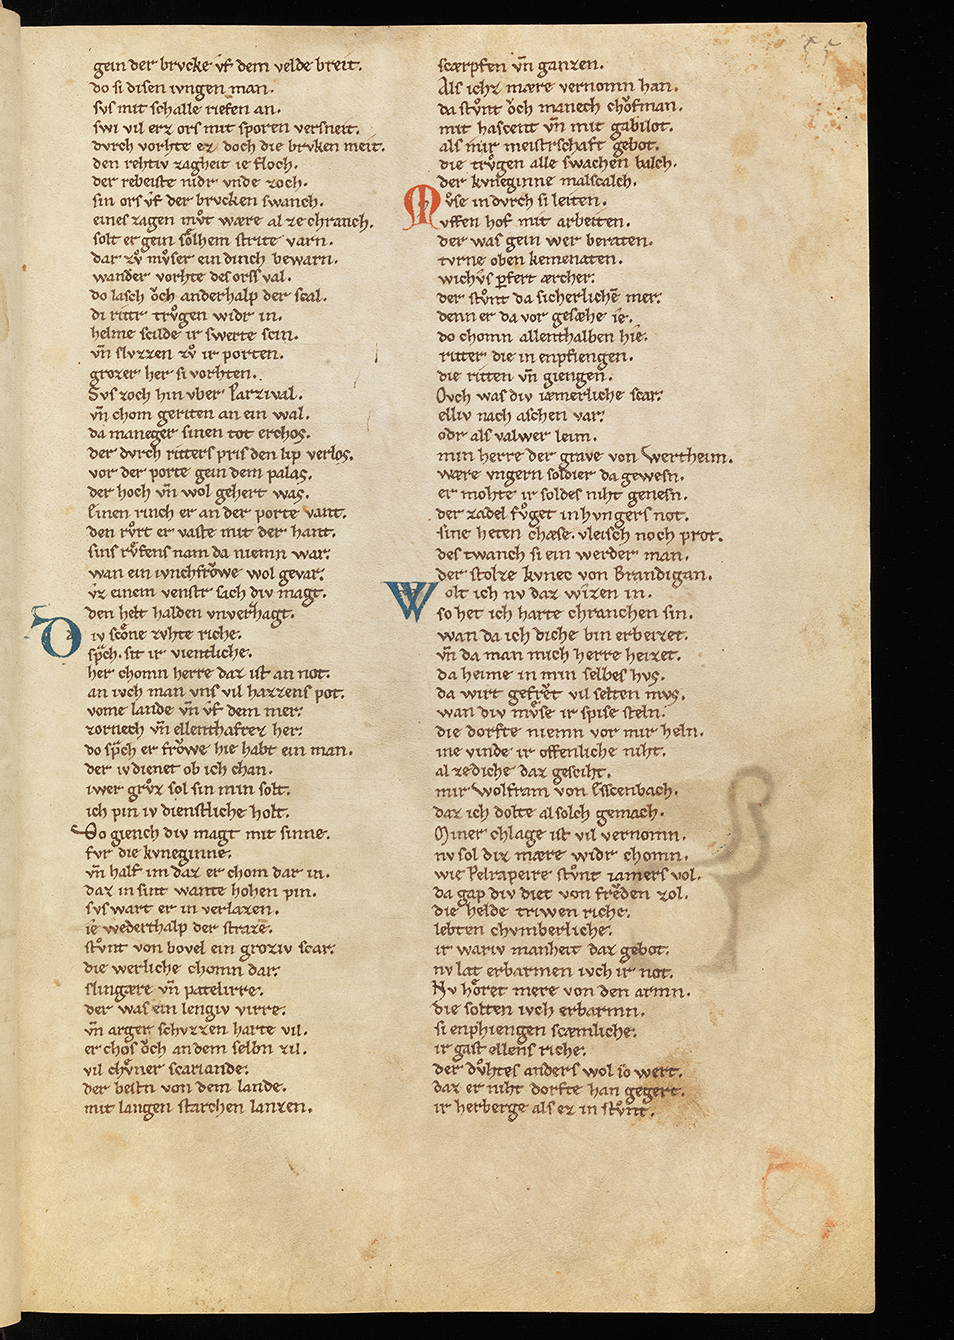 gein der brvcke vf dem velde breit.
do si disen ivngen man.
svs mit schalle riefen an.
swi vil erz ors mit sporen versneit.
dvrch vorhte ez doch die brvken meit.
den rehtiv zagheit ie floch.
der rebeiste nidr vnde zoch.
sin ors vf der brvcken swanch.
eines zagen mvͦt wære al ze chranch.
solt er gein soͤlhem strite varn.
dar zvͦ mvͦser ein dinch bewarn.
wander vorhte des orss val.
do lasch oͮch anderhalp der scal.
di rittr trvͦgen widr in.
helme scilde ir swerte scin.
vn̄ slvzzen zvͦ ir porten.
grozer her si vorhten.
Svs zoch hin vber Parzival.
vn̄ chom geriten an ein wal.
da maneger sinen tot erchos.
der dvrch ritters pris den lip verlos.
vor der porte gein dem palas.
der hoch vn̄ wol gehert was.
Einen rinch er an der porte vant.
den rvͦrt er vaste mit der hant.
sins rvͦfens nam da niemn war.
wan ein ivnchfroͮwe wol gevar.
vz einem venstr sach div magt.
den helt halden vnverhagt.
Div scoͤne zvhte riche.
sp̄ch. sit ir vientliche.
her chomn herre daz ist an not.
an ivch man vns vil hazzens pot.
vome lande vn̄ vf dem mer.
zornech vn̄ ellenthaftez her.
do sp̄ch er froͮwe hie habt ein man.
der iv dienet ob ich chan.
iwer grvͦz sol sin min solt.
ich pin iv dienstliche holt.
Do giench div magt mit sinne.
fvr die kvneginne.
vn̄ half im daz er chom dar in.
daz in sint wante hohen pin.
svs wart er in verlazen.
ie wederthalp der straze.
stvͦnt von bovel ein groziv scar.
die werliche chomn dar.
slingære vn̄ patelirre.
der was ein lengiv virre.
vn̄ arger schvzzen harte vil.
er chos oͮch an dem selbn zil.
vil chvͤner scariande.
der bestn von dem lande.
mit langen starchen lanzen.
scærpfen vn̄ ganzen.
Als ichz mære vernomn han.
da stvͦnt oͮch manech choͮfman.
mit hascent vn̄ mit gabilot.
als mir meistrschaft gebot.
die trvͦgen alle swachen balch.
der kvneginne malscalch.
Mvͦse in dvrch si leiten.
vffen hof mit arbeiten.
der was gein wer beraten.
tvrne oben kemenaten.
wichvs perfert ærcher.
der stvͦnt da sicherlichē mer.
denn er da vor gesæhe ie.
do chomn allenthalben hie.
ritter die in enpfiengen.
die ritten vn̄ giengen.
Ovch was div iæmerliche scar.
elliv nach aschen var.
odr als valwer leim.
min herre der grave von Wertheim.
wære vngern soldier da gewesn.
er mohte ir soldes niht genesn.
der zadel fvͦget in hvngers not.
sine heten chæse. vleisch noch prot.
des twanch si ein werder man.
der stolze kvnec von Brandigan.
Wolt ich nv daz wizen in.
so het ich harte chranchen sin.
wan da ich diche bin erbeizet.
vn̄ da man mich herre heizet.
da heime in min selbes hvs.
da wirt gefret vil selten mvs.
wan div mvͤse ir spise steln.
die dorfte niemn vor mir heln.
ine vinde ir offenliche niht.
al zediche daz gesciht.
mir Wolfram von Esscenbach.
daz ich dolte alsolch gemach.
Miner chlage ist vil vernomn.
nv sol diz mære widr chomn.
wie Pelrapeire stvͦnt iamers vol.
da gap div diet von freden zol.
die helde triwen riche.
lebten chvmberliche.
ir wariv manheit daz gebot.
nv lat erbarmen ivch ir not.
Nv hoͤret mere von den armn.
die solten ivch erbarmn.
si enphiengen scæmliche.
ir gast ellens riche.
der dvͦhtes anders wol so wert.
daz er niht dorfte han gegert.
ir herberge als ez in stvͦnt.